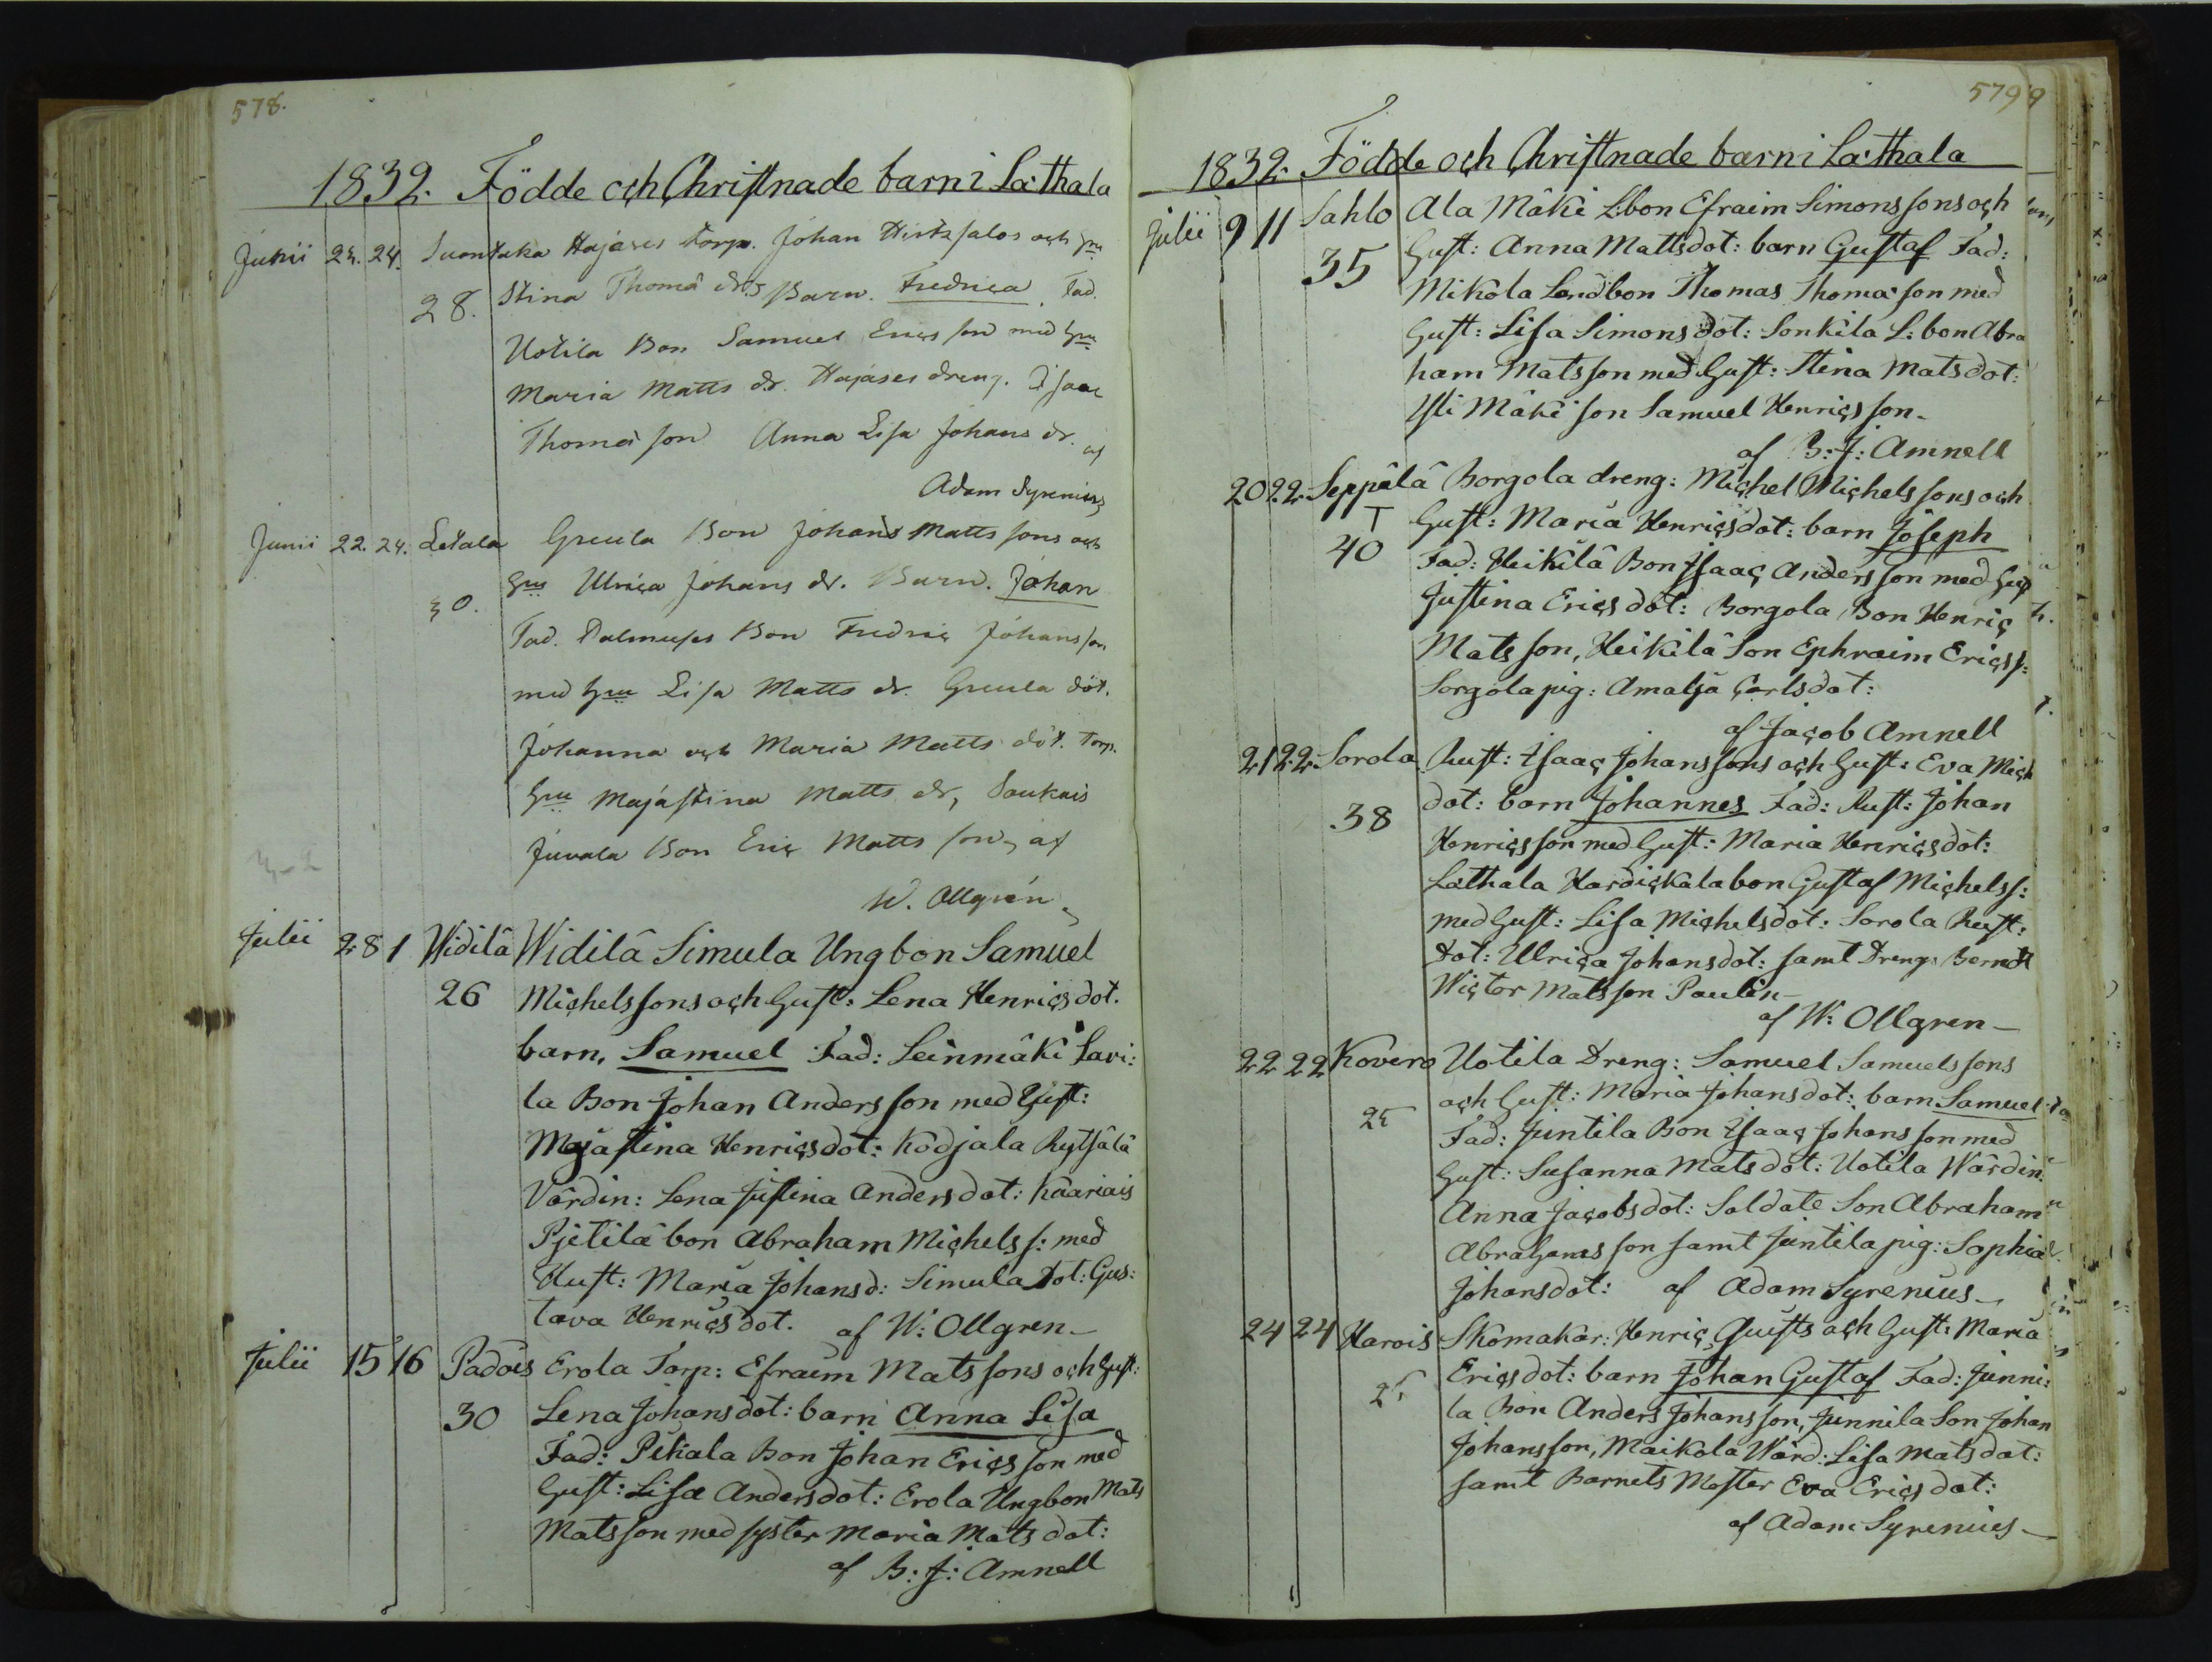 578.
1832. Födde och Christnade barn i Lâthala
Junii 23. 24. Suontaka Hajases torp. Johan Hirtzsalos och Hu
28. Stina Thomä drs Barn. Fredrica. Fad.
Uotila Bon Samuel Erics son med Hu
Maria Matts dr. Hajases dreng. Isaac
Thomä son Anna Lisa Johans dr. af
Adam Syrenius
Junii 22. 24. Letala Greula Bon Johans Matts sons och
30. Hu Ulrica Johans dr. Barn. Johan
Fad. Palmuses Bon Fredric Johans son
med Hu Lisa Matts dr. Greula dot.
Johanna och Maria Matts dot. torp.
Hu Majastina Matts dr, Saukais
Juvala Bon Eric Matts son, af
W. Ollgrén
Julii 28 1 Widilâ Widilâ Simula Ungbon Samuel
26 Michels sons och Hust: Lena Henrics dot.
barn, Samuel Fad: Leinmâki Savi:
la Bon Johan Anders son med Hust:
Majastina Henricsdot: Kodjala Rytsâlâ
Vârdin: Lena Justina Anders dot: Kâariais
Pjetilâ bon Abraham Michels s: med
Hust: Maria Johans d: Simula Dot: Gus:
tava Henrics dot. af W: Ollgren
Julii 15 16 Padois Erola Torp: Efraim Mats sons och Hust:
30 Lena Johans dot: barn Anna Lisa
Fad: Pekala Bon Johan Erics son med
Hust: Lisa Anders dot: Erola Ungbon Mats
Mats son med syster Maria Mats dot:
af B: J: Amnell
579
1832. Födde och Christnade barn i Lâthala
Julii 9 11 Sahlo Ala Mâki L:bon Efraim Simons sons och
35 Hust: Anna Matts dot: barn Gustaf Fad:
Mikola Landbon Thomas Thomæ son med
Hust: Lisa Simons dot: Sonkila L: bon Abra
ham Mats son med Hust: Stina Mats dot:
Yli Mâki son Samuel Henrics son
af B: J: Amnell
20 22 Seppâlâ Borgola dreng: Michel Michels sons och
T Hust: Maria Henrics dot: barn Joseph
40 Fad: Heikilâ Bon Isaac Anders son med Hust
Justina Erics dot: Borgola Bon Henric
Mats son, Heikilâ Son Ephraim Erics s:
Sorgola pig: Amalja Carls dot:
af Jacob Amnell
21 22 Sorola Rust: Isaac Johans sons och Hust: Eva Mich
38 dot: barn Johannes Fad: Rust: Johan
Henrics son med Hust: Maria Henrics dot:
Lathala Hardickala bon Gustaf Michels s:
med Hust: Lisa Michels dot: Sorola Rust:
Dot: Ulrica Johans dot: samt Dreng: Berndt
Wictor Mats son Paulin
af W: Ollgren
22 22 Kovero Uotila Dreng: Samuel Samuels sons
25 och Hust: Maria Johans dot: barn Samuel
Fad: Juntila Bon Isaac Johans son med
Hust: Susanna Mats dot: Uotila Wârdin:
Anna Jacobs dot: Soldate Son Abraham
Abrahams son samt Juntila pig: Sophia
Johans dot: af Adam Syrenius
24 24 Harois Skomakar: Henric Quists och Hust: Maria
25 Erics dot: barn Johan Gustaf Fad: Junni:
la Bon Anders Johans son, Junnila Son Johan
Johans son, Maikola Wârd: Lisa Mats dot:
samt Barnets Moster Eva Erics dot:
af Adam Syrenius